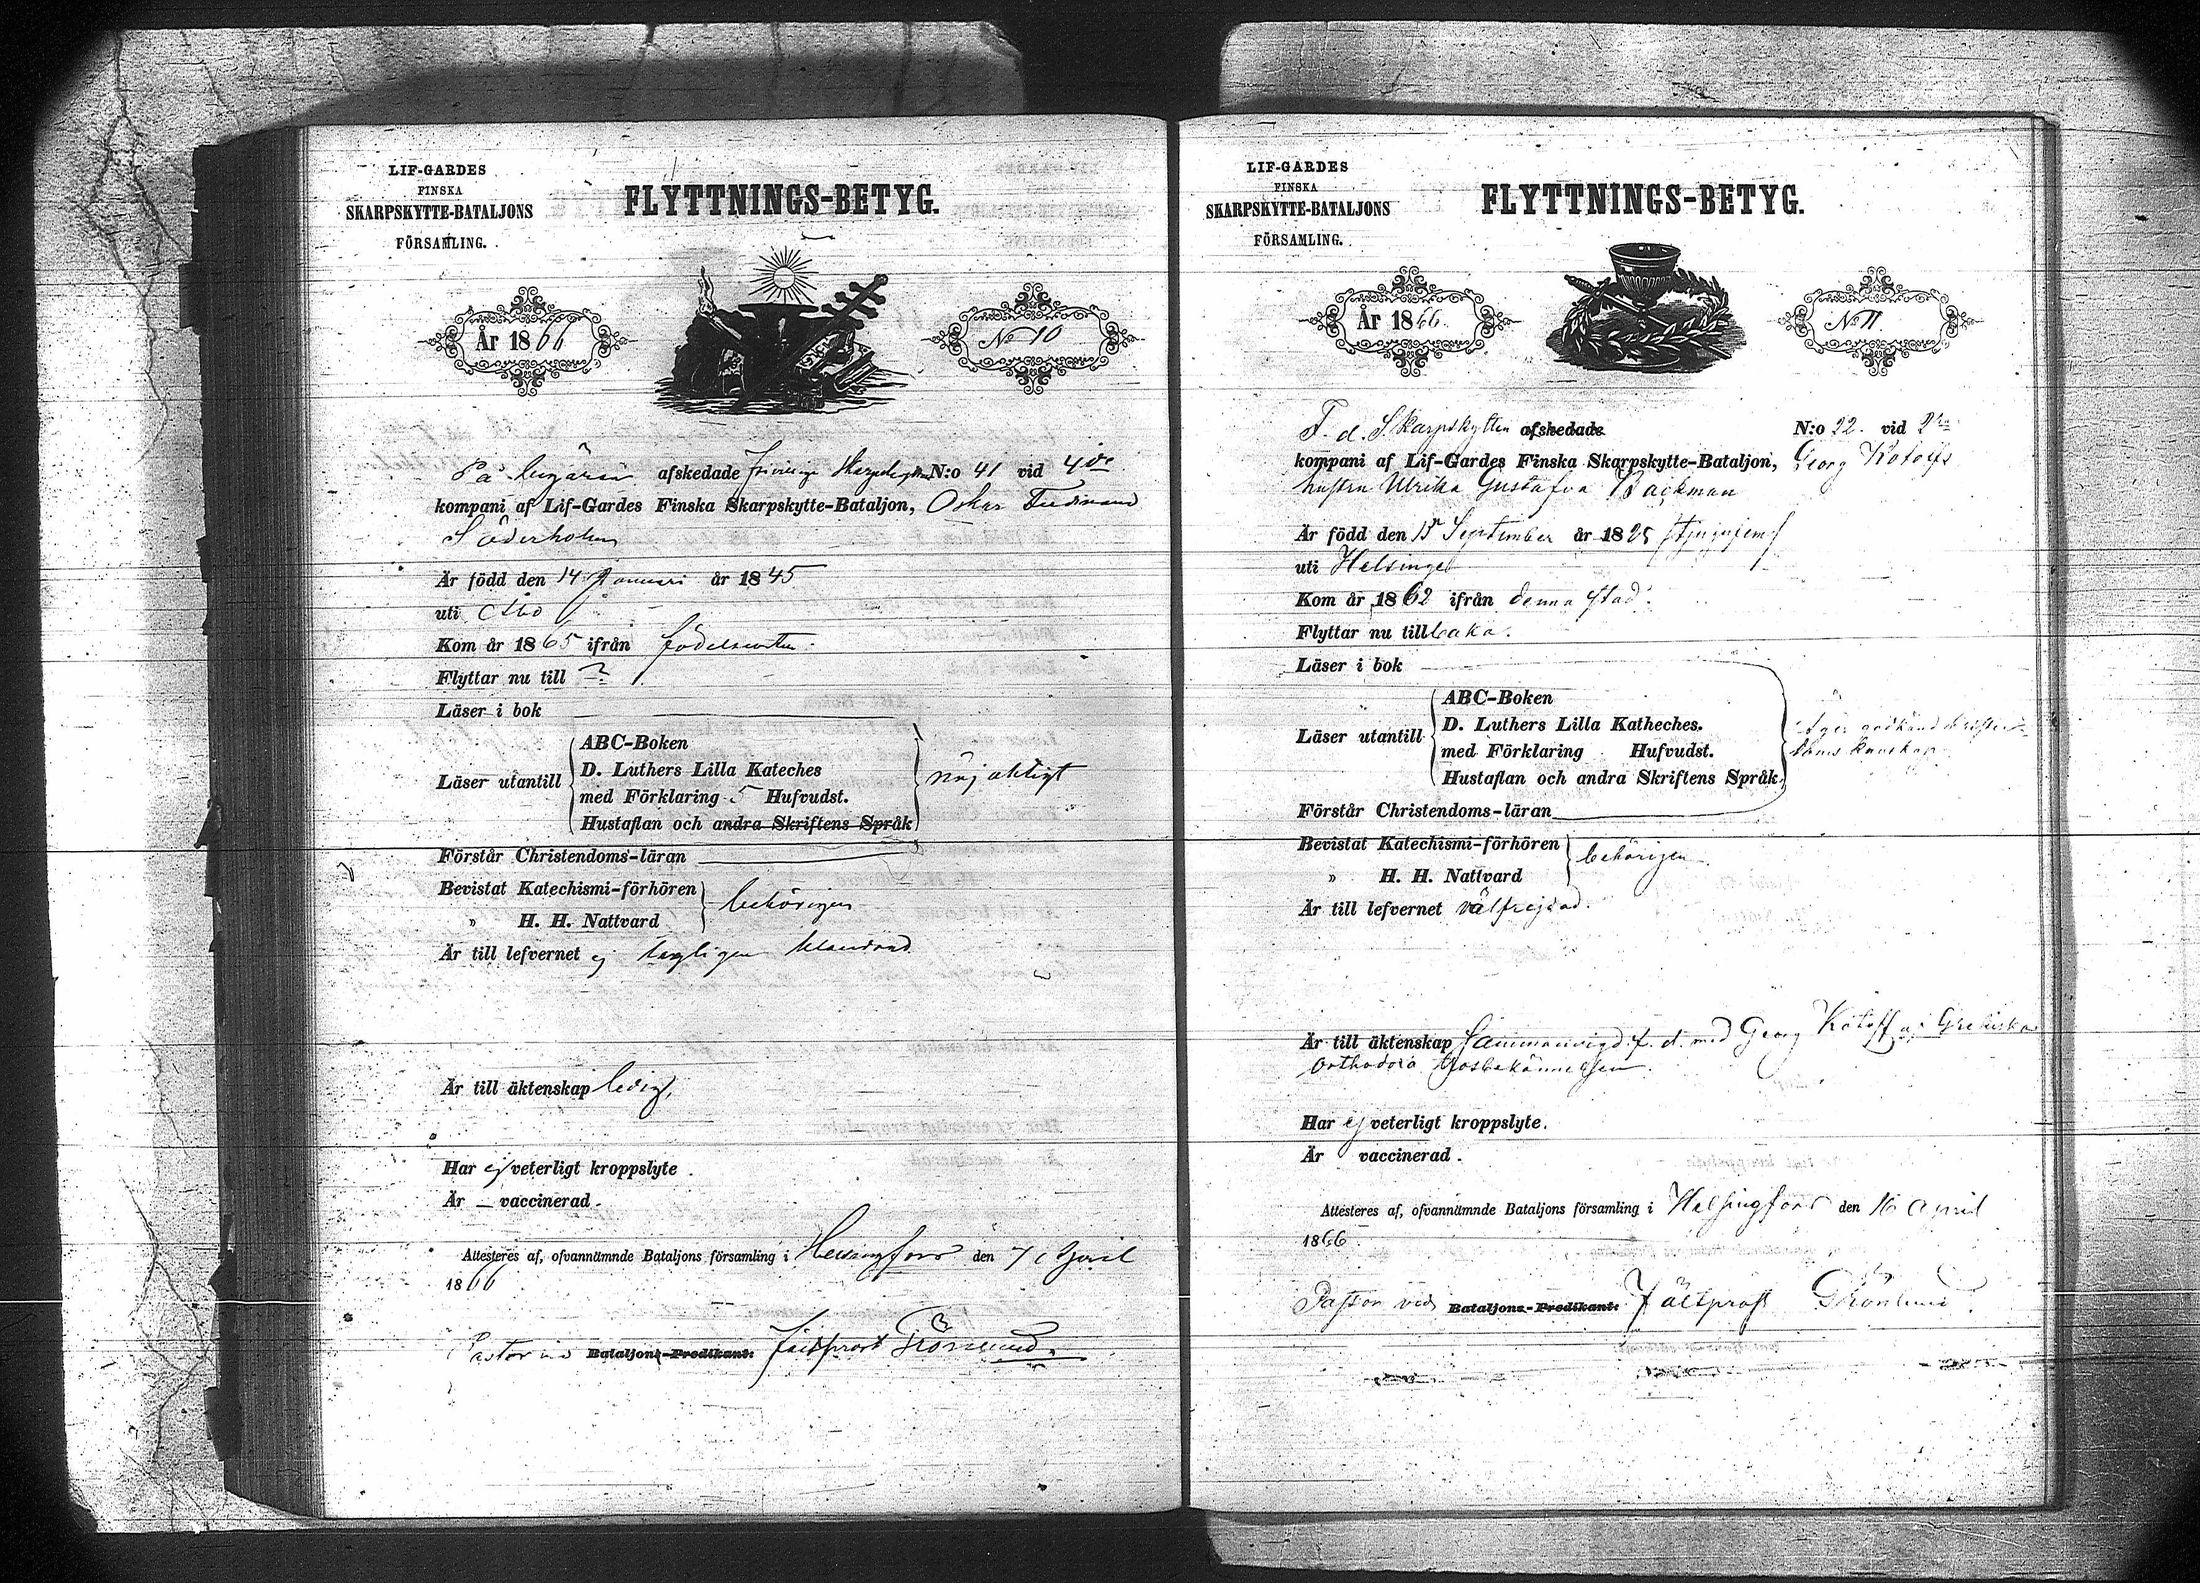 LIF-GARDES
FINSKA
SKARPSKYTTE-BATALJONS
FÖRSAMLING.
FLYTTNINGS-BETYG.
År 1866
No 10
På begäran afskedade frivillige Skarpskytten N:o 41 vid 4de
kompani af Lif-Gardes Finska Skarpskytte-Bataljon, Oskar Ferdinand
Söderholm
Är född den 14 Januari år 1845
uti Åbo
Kom år 1865 ifrån födelseorten.
Flyttar nu till ?
Läser i bok
ABC-Boken
Läser utantill D. Luthers Lilla Kateches
med Förklaring 5 Hufvudst.
Hustaflan och andra Skriftens Språk
nöjaktigt
Förstår Christendoms-läran
Bevistat Katechismi-förhören
" H. H. Nattvard
behörigen
Är till lefvernet ej lagligen klandrad
Är till äktenskap ledig,
Har ej veterligt kroppslyte.
Är vaccinerad.
Attesteres af, ofvannämnde Bataljons församling i Helsingfors den 7 April
1866
Pastor vid Bataljons-Predikant: Fältprost Grönlund.
LIF-GARDES
FINSKA
SKARPSKYTTE-BATALJONS
FÖRSAMLING.
FLYTTNINGS-BETYG.
År 1866.
No 11.
F. d. Skarpskytten afskedade N:o 22. vid 2dra
kompani af Lif-Gardes Finska Skarpskytte-Bataljon, Georg Kotoffs
hustru Ulrika Gustafva Backman
Är född den 15 September år 1825 /tjugufem/
uti Helsinge
Kom år 1862 ifrån denna stad.
Flyttar nu tillbaka.
Läser i bok
ABC-Boken
Läser utantill D. Luthers Lilla Katheches.
med Förklaring Hufvudst.
Hustaflan och andra Skriftens Språk,
äger godkänd kristen-
doms kunskap
Förstår Christendoms-läran
Bevistat Katechismi-förhören
" H. H. Nattvard
behörigen.
Är till lefvernet välfrejdad.
Är till äktenskap Sammanvigd f. d. med Georg Kotoff af Grekiska
orthodoxa trosbekännelsen.
Har ej veterligt kroppslyte.
Är vaccinerad.
Attesteres af, ofvannämnde Bataljons församling i Helsingfors den 16 April
1866.
Pastor vid Bataljons-Predikant: Fältprost Grönlund.